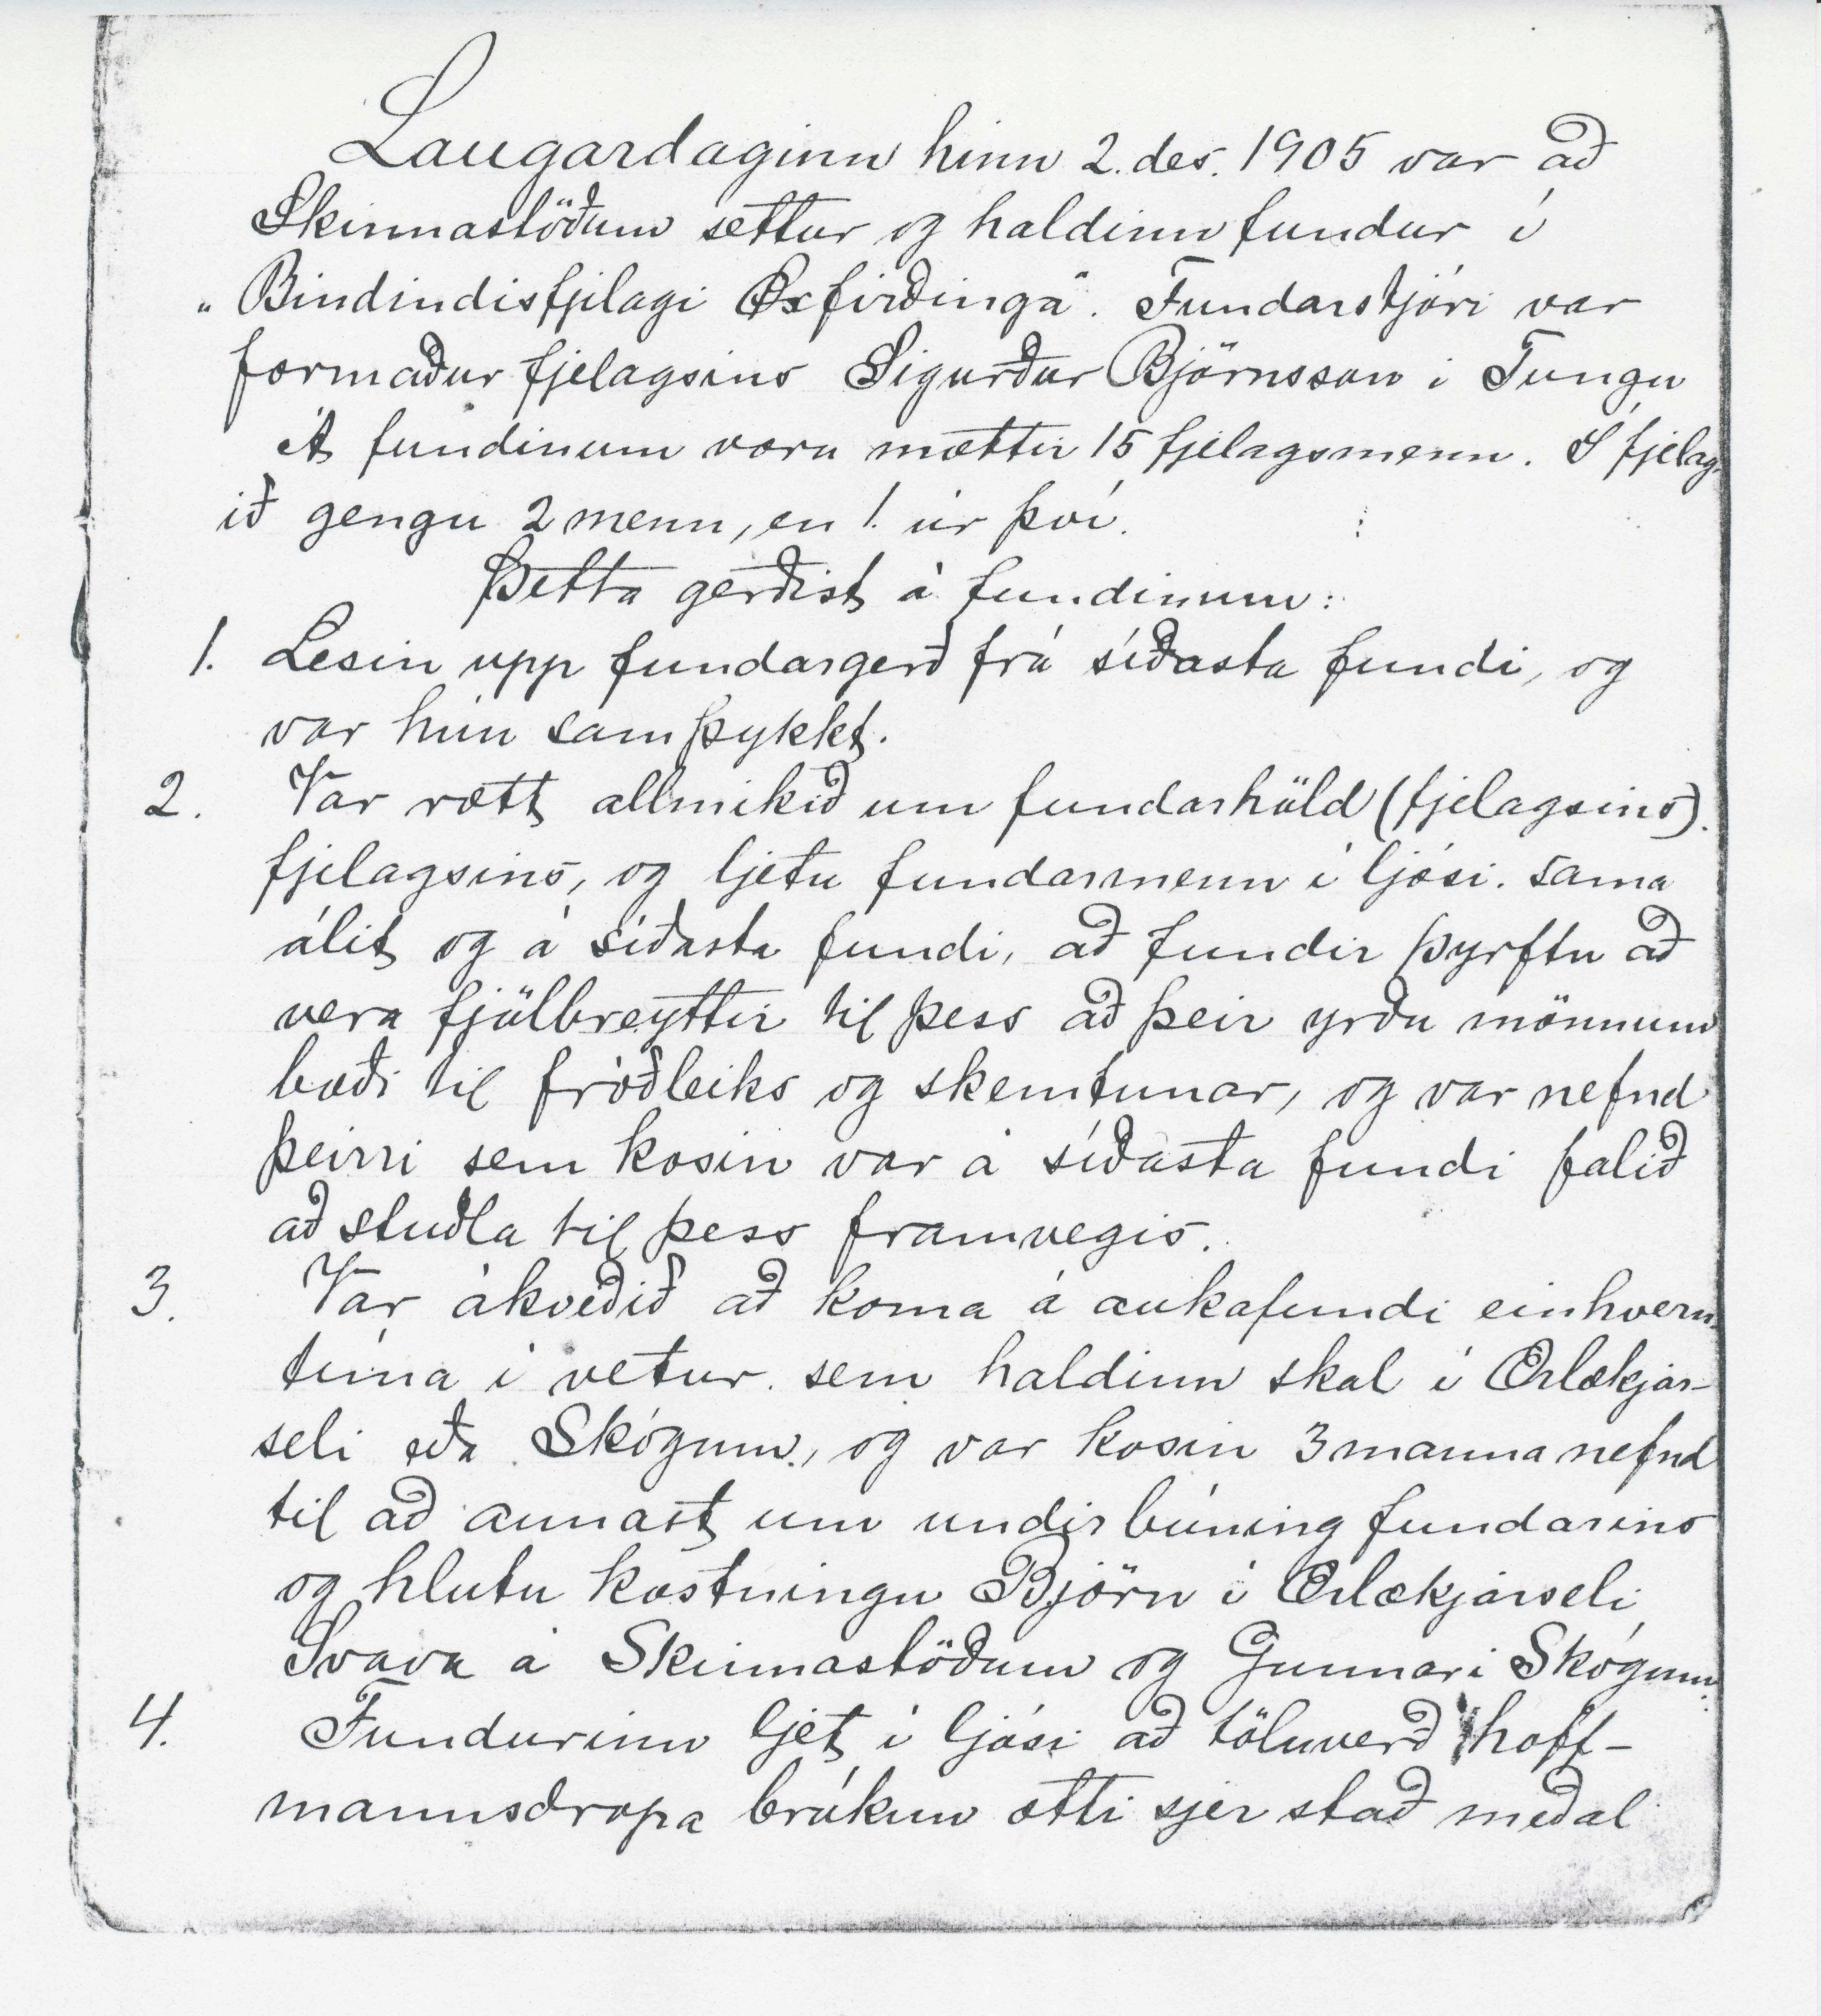 Laugardaginn hinn 2. des. 1905 var að
Skinnastöðum settur og haldinn fundur í
„Bindindisfjelagi Öxfirðinga“. Fundarstjóri var
formaður fjelagsins Sigurður Björnsson í Tungu
Á fundinum voru mættir 15 fjelagsmenn. Í fjelag-
ið gengu 2 menn, en 1. úr því.
Þetta gerðist á fundinum:
1. Lesin upp fundargerð frá síðasta fundi, og
var hún samþykkt.
2. Var rætt allmikið um fundarhöld (fjelagsins).
fjelagsins, og ljetu fundarmenn í ljósi sama
álit og á síðasta fundi, að fundir þyrftu að
vera fjölbreyttir til þess að þeir yrðu mönnum
bæði til fróðleiks og skemtunar, og var nefnd
þeirri sem kosin var á síðasta fundi falið
að stuðla til þess framvegis.
3. Var ákveðið að koma á aukafundi einhvern-
tíma í vetur sem haldinn skal í Ærlækjar-
seli eða Skógum, og var kosin 3 manna nefnd
til að annast um undirbúning fundarins
og hlutu kostningu Björn í Ærlækjarseli
Svava á Skinnastöðum og Gunnar í Skógum.
4. Fundurinn ljet í ljósi að töluverð hoff-
mannsdropa brúkun ætti sjer stað meðal